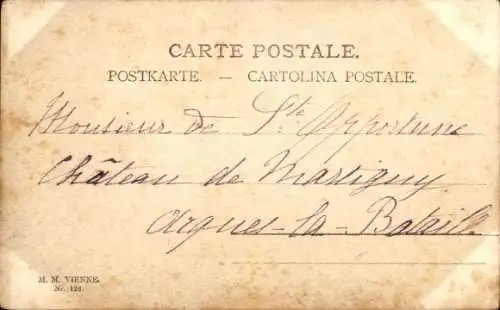 CARTE POSTALE.
POSTKARTE. — CARTOLINA POSTALE.
Monsieur de Ste. Opportune
Château de Martigny
Arques-la-Bataille
M. M. VIENNE.
Nr. 128.